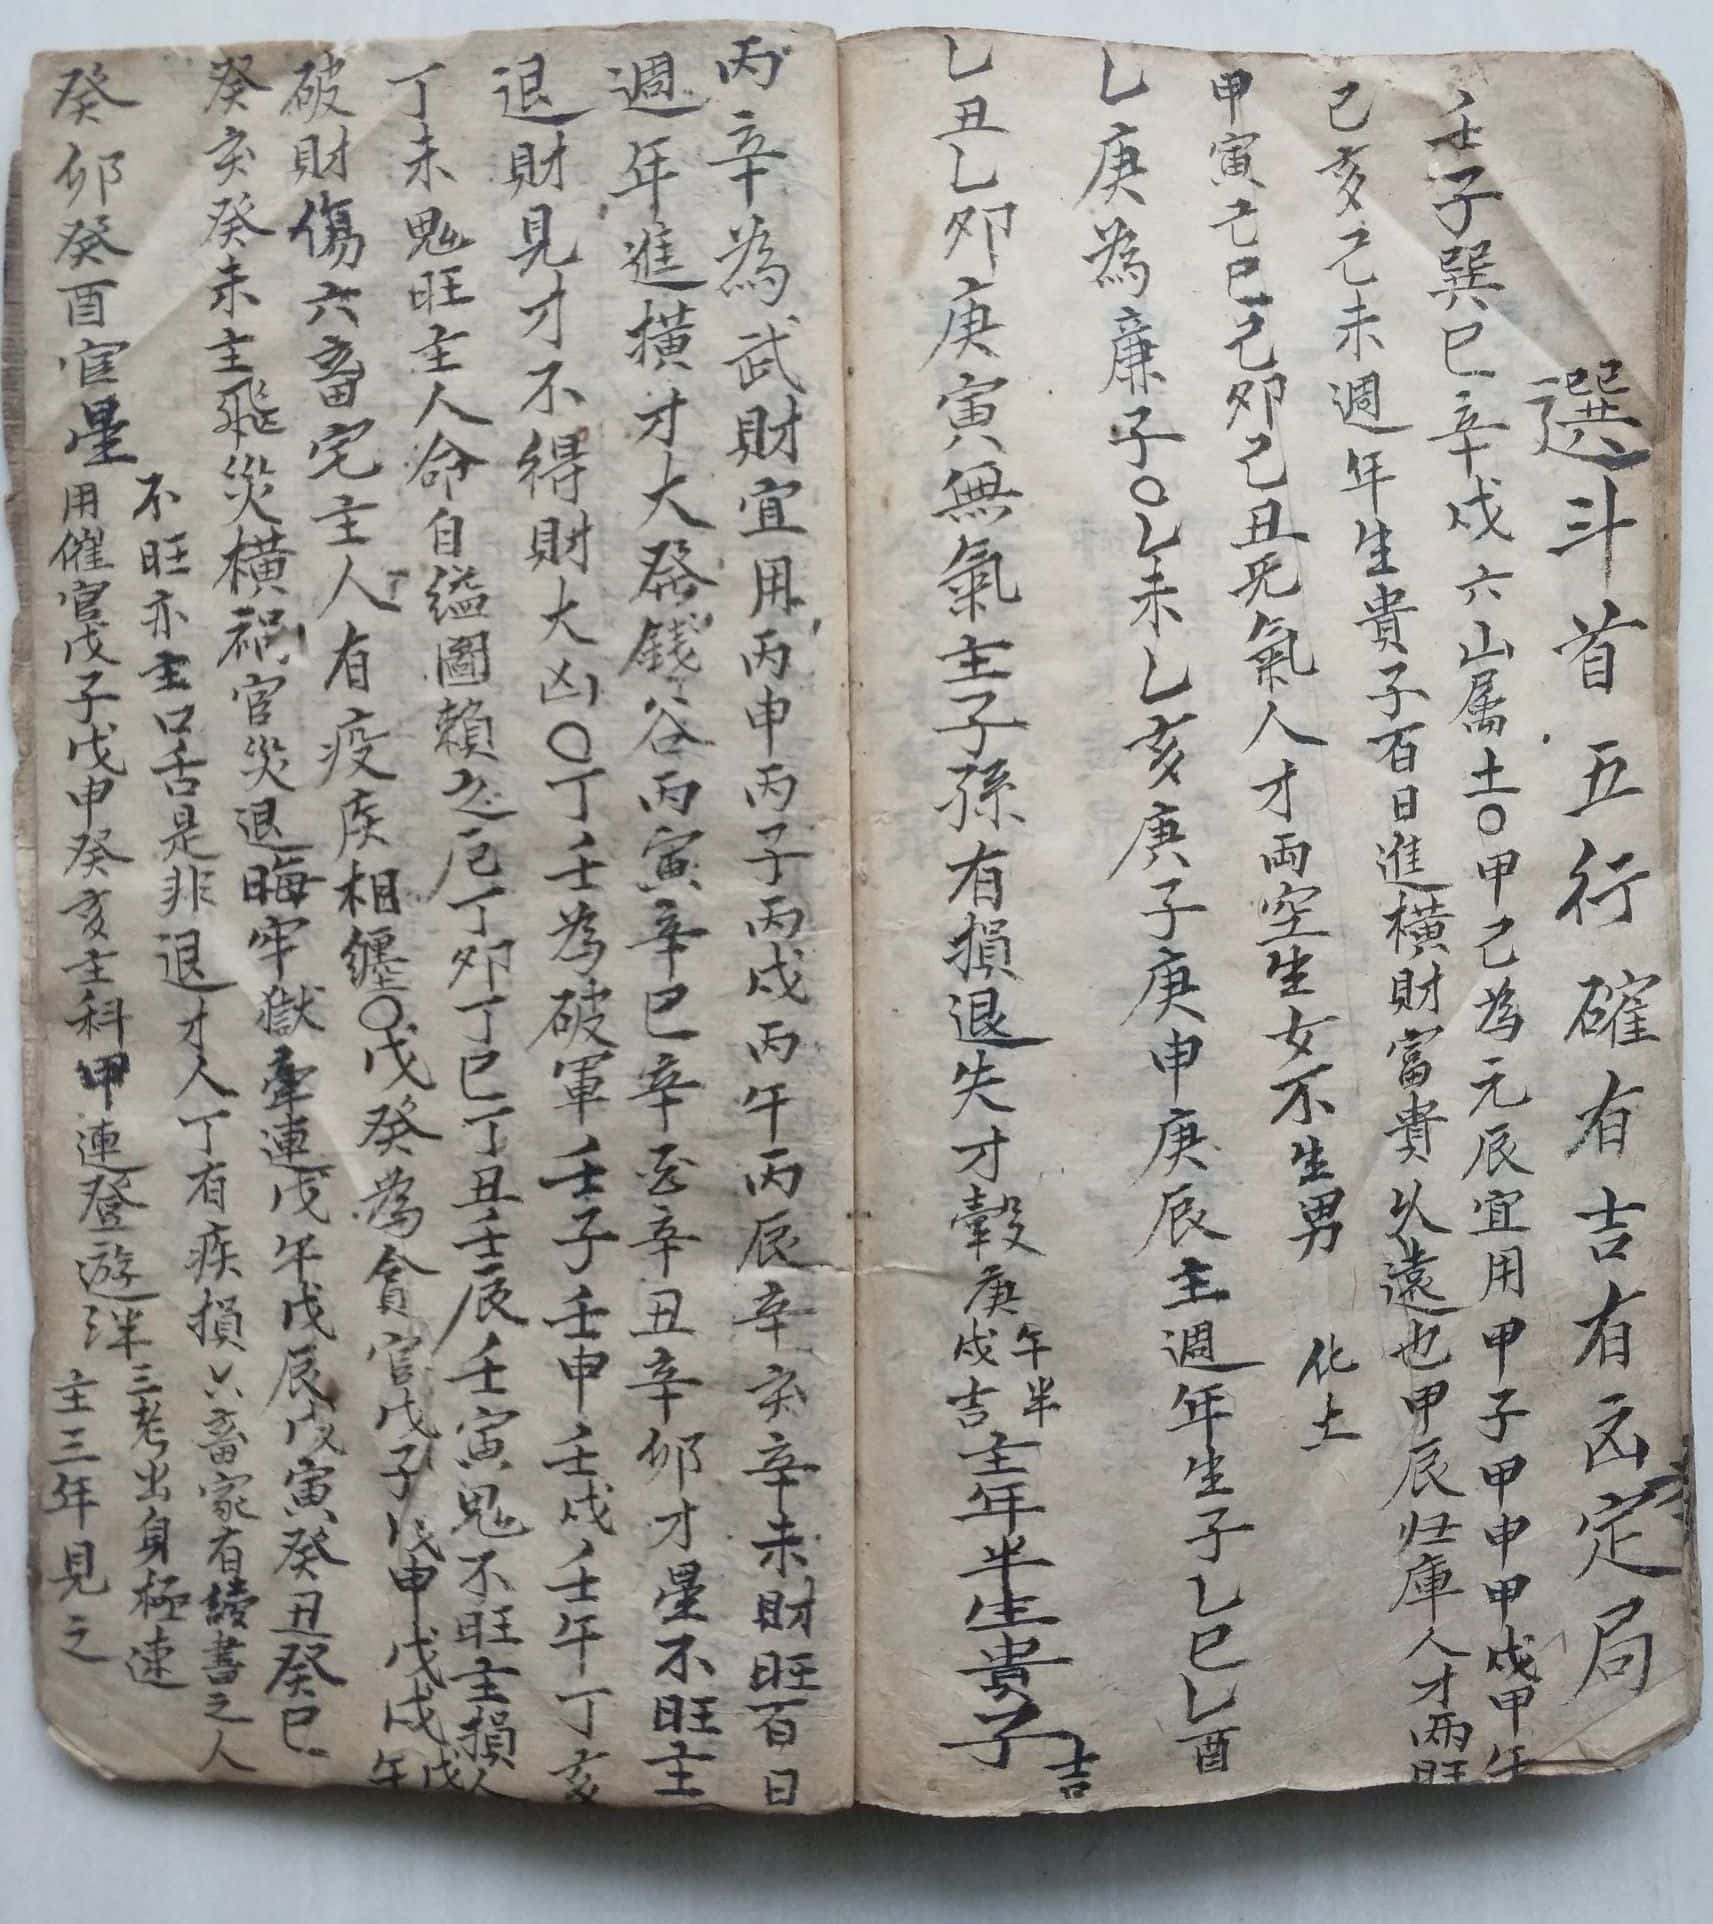 選斗首五行確有吉有凶定局
壬子巽巳辛戌六山属土〇甲己為元辰宜用甲子甲申甲戌甲午
己亥己未週年生貴子百日進橫財富貴久遠也甲辰归庫人才兩旺
甲寅己巳己卯己丑死氣人才両空生女不生男 化土
乚庚為廉子〇乚未乚亥庚子庚申庚辰主週年生子乚巳乚酉
乚丑乚卯庚寅無氣主子孫有損退失才穀庚戌吉午半主年半生貴子吉
丙辛為武財宜用丙申丙子丙戌丙午丙辰辛亥辛未財旺百日
週年進橫才大發錢谷丙寅辛巳辛酉辛丑辛卯才星不旺主
退財見才不得財大凶〇丁壬為破軍壬子壬申壬戌壬午丁亥
丁未鬼旺主人命自缢圖賴之厄丁卯丁巳丁丑壬辰壬寅鬼不旺主損人
破財傷六畜宅主人有疫疾相纏〇戊癸為貪官戊子戊申戊戌戊午
癸亥癸未主飛災橫禍官災退晦牢獄牽連戊午戊辰戊寅癸丑癸巳
不旺亦主口舌是非退才人丁有疾損六畜家有讀書之人
癸卯癸酉官星用催官戊子戊申癸亥主科甲連登遊泮三考出身極速
主三年見之